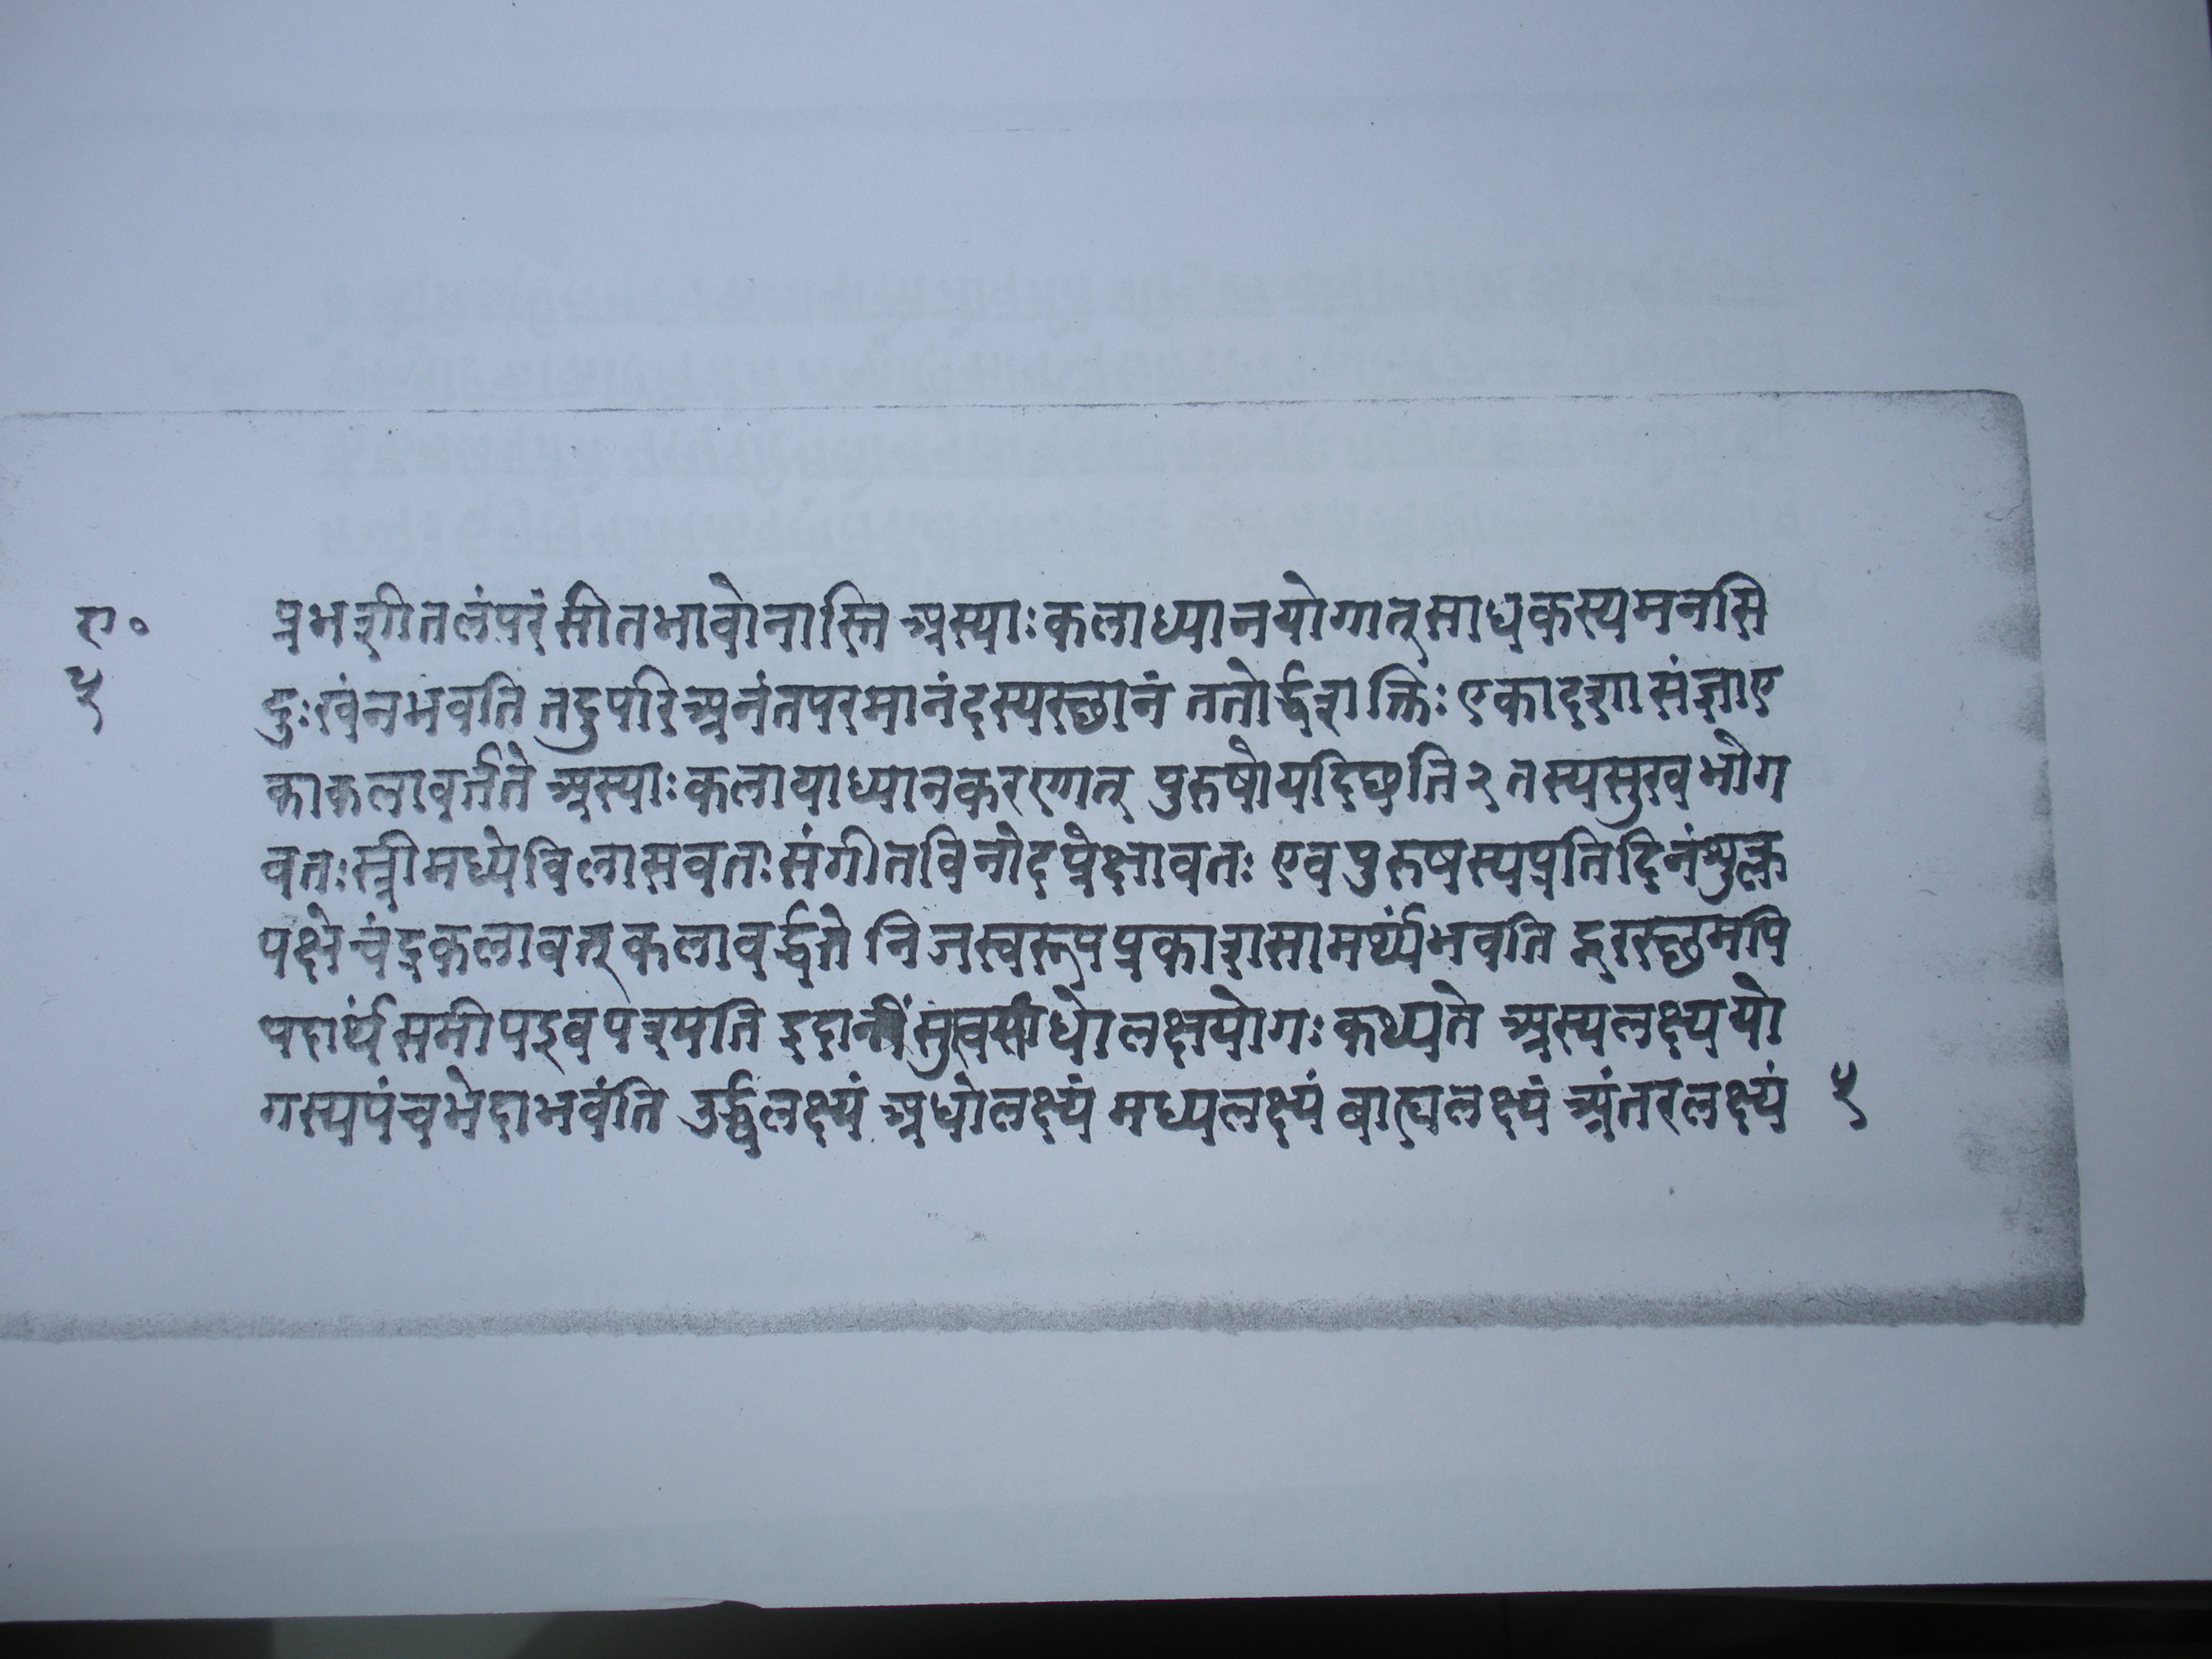 रा०
५
प्रभशीतलंपरंसीतभावोनास्ति अस्याःकलाध्यानयोगात्साधकस्यमनसि
दुःखंनभवति तदुपरिअनंतपरमानंदस्यस्छानं ततोर्द्धशक्तिः एकादशासंज्ञाए
काकलावर्तते अस्याःकलायाध्यानकरणात् पुरुषोयदिछति २ तस्यसुखभोग
वतःस्त्रीमध्येविलासवतःसंगीतविनोदप्रेक्षावतः एवपुरुषस्यप्रतिदिनंशुक्ल
पक्षेचंद्रकलावत्कलावर्द्धते निजस्वरूपप्रकाशसामर्थ्यंभवति दूरस्छमपि
पदार्थंसमीपइवपश्यति इदानींसुखसाधोलक्षयोगः कथ्यते अस्यलक्ष्ययो
गस्यपंचभेदाभवंति उर्द्धलक्ष्यं अधोलक्ष्यं मध्यलक्ष्यं बाह्यलक्ष्यं अंतरलक्ष्यं ५